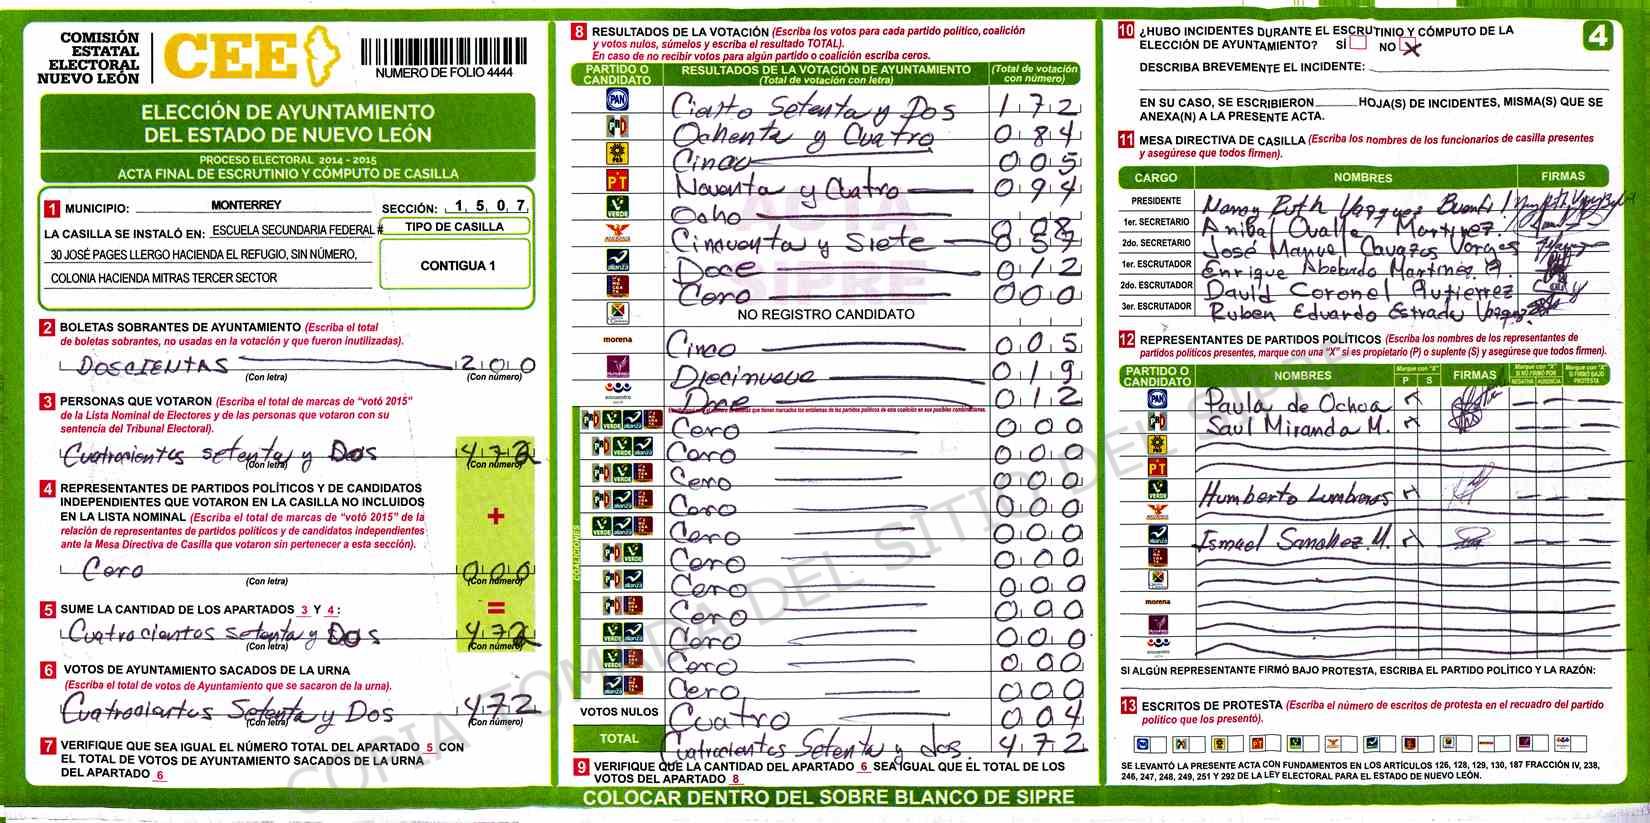 COMISIÓN
ESTATAL
ELECTORAL
NUEVO LEÓN
CEE
NUMERO DE FOLIO 4444
ELECCIÓN DE AYUNTAMIENTO
DEL ESTADO DE NUEVO LEÓN
PROCESO ELECTORAL 2014 - 2015
ACTA FINAL DE ESCRUTINIO Y CÓMPUTO DE CASILLA
1 MUNICIPIO: MONTERREY SECCIÓN: 1 5 0 7
LA CASILLA SE INSTALÓ EN: ESCUELA SECUNDARIA FEDERAL #
30 JOSÉ PAGES LLERGO HACIENDA EL REFUGIO, SIN NÚMERO,
COLONIA HACIENDA MITRAS TERCER SECTOR
TIPO DE CASILLA
CONTIGUA 1
2 BOLETAS SOBRANTES DE AYUNTAMIENTO (Escriba el total
de boletas sobrantes, no usadas en la votación y que fueron inutilizadas).
DOSCIENTAS 2 0 0
(Con letra) (Con número)
3 PERSONAS QUE VOTARON (Escriba el total de marcas de "votó 2015"
de la Lista Nominal de Electores y de las personas que votaron con su
sentencia del Tribunal Electoral).
Cuatrocientos setenta y Dos 472
(Con letra) (Con número)
4 REPRESENTANTES DE PARTIDOS POLÍTICOS Y DE CANDIDATOS
INDEPENDIENTES QUE VOTARON EN LA CASILLA NO INCLUIDOS
EN LA LISTA NOMINAL (Escriba el total de marcas de "votó 2015" de la
relación de representantes de partidos políticos y de candidatos independientes
ante la Mesa Directiva de Casilla que votaron sin pertenecer a esta sección).
+
Cero 000
(Con letra) (Con número)
=
5 SUME LA CANTIDAD DE LOS APARTADOS 3 Y 4:
Cuatrocientos setenta y Dos 472
(Con letra) (Con número)
6 VOTOS DE AYUNTAMIENTO SACADOS DE LA URNA
(Escriba el total de votos de Ayuntamiento que se sacaron de la urna).
Cuatrocientos Setenta y Dos 472
(Con letra) (Con número)
7 VERIFIQUE QUE SEA IGUAL EL NÚMERO TOTAL DEL APARTADO 5 CON
EL TOTAL DE VOTOS DE AYUNTAMIENTO SACADOS DE LA URNA
DEL APARTADO 6
8 RESULTADOS DE LA VOTACIÓN (Escriba los votos para cada partido político, coalición
y votos nulos, súmelos y escriba el resultado TOTAL).
En caso de no recibir votos para algún partido o coalición escriba ceros.
PARTIDO O CANDIDATO
RESULTADOS DE LA VOTACIÓN DE AYUNTAMIENTO
(Total de votación con letra)
(Total de votación con número)
PAN Ciento Setenta y Dos 1 7 2
PRD Ochenta y Cuatro 0 8 4
PRD Cinco 0 0 5
PT Noventa y Cuatro 0 9 4
VERDE Ocho 0 0 8
Cincuenta y Siete 0 5 7
alianza Doce 0 1 2
Cero 0 0 0
NO REGISTRO CANDIDATO
morena Cinco 0 0 5
Diecinueve 0 1 9
encuentro Doce 0 1 2
COALICIONES
Cero 0 0 0
Cero 0 0 0
Cero 0 0 0
Cero 0 0 0
Cero 0 0 0
Cero 0 0 0
Cero 0 0 0
Cero 0 0 0
Cero 0 0 0
Cero 0 0 0
Cero 0 0 0
VOTOS NULOS Cuatro 0 0 4
TOTAL Cuatrocientos Setenta y dos. 4 7 2
9 VERIFIQUE QUE LA CANTIDAD DEL APARTADO 6 SEA IGUAL QUE EL TOTAL DE LOS
VOTOS DEL APARTADO 8
COLOCAR DENTRO DEL SOBRE BLANCO DE SIPRE
ACTA
SIPRE
COPIA TOMADA DEL SITIO DEL SIPRE
4
10 ¿HUBO INCIDENTES DURANTE EL ESCRUTINIO Y CÓMPUTO DE LA
ELECCIÓN DE AYUNTAMIENTO? SÍ NO X
DESCRIBA BREVEMENTE EL INCIDENTE:
EN SU CASO, SE ESCRIBIERON HOJA(S) DE INCIDENTES, MISMA(S) QUE SE
ANEXA(N) A LA PRESENTE ACTA.
11 MESA DIRECTIVA DE CASILLA (Escriba los nombres de los funcionarios de casilla presentes
y asegúrese que todos firmen).
CARGO NOMBRES FIRMAS
PRESIDENTE Nancy Ruth Vazquez
1er. SECRETARIO Anibal Ovalle Martinez.
2do. SECRETARIO José Manuel Cavazos Vargas
1er. ESCRUTADOR Enrique Abelardo Martinez
2do. ESCRUTADOR David Coronel Gutierrez
3er. ESCRUTADOR Ruben Eduardo Estrada
12 REPRESENTANTES DE PARTIDOS POLÍTICOS (Escriba los nombres de los representantes de
partidos políticos presentes, marque con una "X" si es propietario (P) o suplente (S) y asegúrese que todos firmen).
PARTIDO O CANDIDATO NOMBRES Marque con "X" P S FIRMAS Marque con "X" SI NO FIRMÓ POR NEGATIVA AUSENCIA Marque con "X" SI FIRMÓ BAJO PROTESTA
PAN Paula de Ochoa X
Saul Miranda M. X
PRD
PT
VERDE Humberto Lumbreras X
alianza Ismael Sanchez M. X
morena
encuentro
SI ALGÚN REPRESENTANTE FIRMÓ BAJO PROTESTA, ESCRIBA EL PARTIDO POLÍTICO Y LA RAZÓN:
13 ESCRITOS DE PROTESTA (Escriba el número de escritos de protesta en el recuadro del partido
político que los presentó).
SE LEVANTÓ LA PRESENTE ACTA CON FUNDAMENTOS EN LOS ARTÍCULOS 126, 128, 129, 130, 187 FRACCIÓN IV, 238,
246, 247, 248, 249, 251 Y 292 DE LA LEY ELECTORAL PARA EL ESTADO DE NUEVO LEÓN.